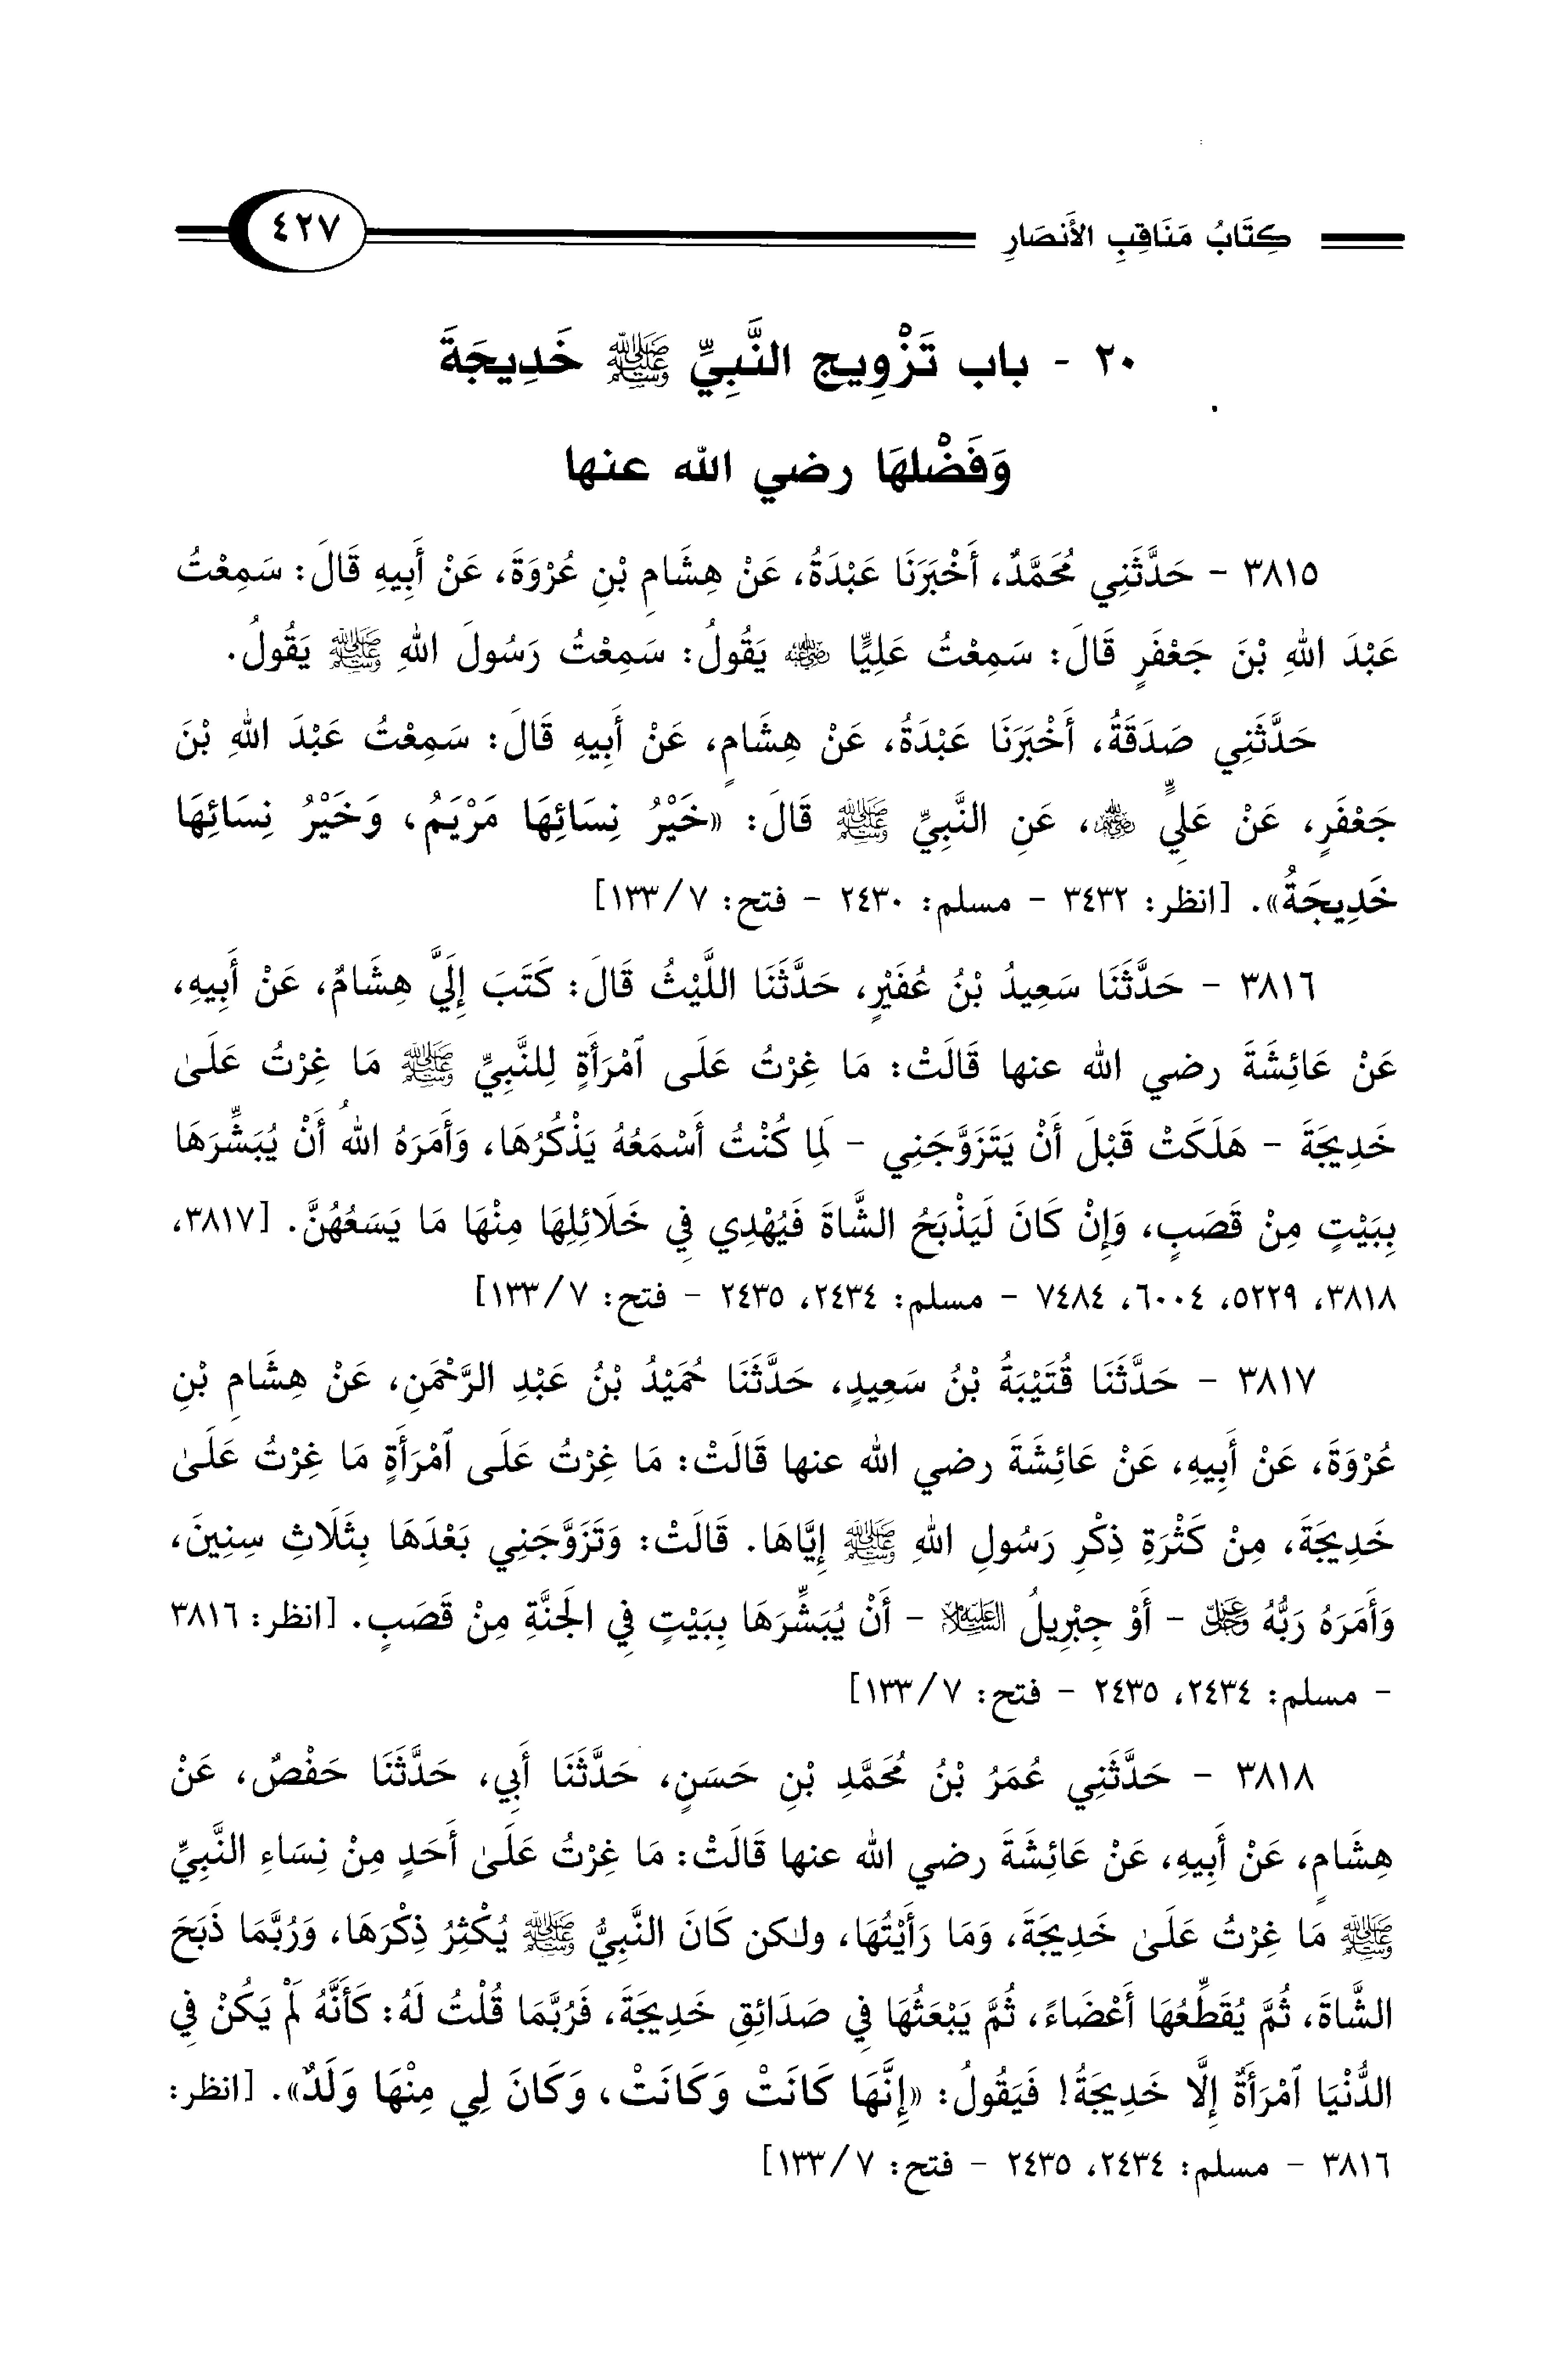 كِتَابُ مَنَاقِبِ الأَنصَارِ
٤٢٧
٢٠ - باب تَزْوِيج النَّبِيِّ ﷺ خَدِيجَةَ
وَفَضْلهَا رضي الله عنها
٣٨١٥ - حَدَّثَنِي مُحَمَّدٌ، أَخْبَرَنَا عَبْدَةُ، عَنْ هِشَامِ بْنِ عُرْوَةَ، عَنْ أَبِيهِ قَالَ: سَمِعْتُ
عَبْدَ اللهِ بْنَ جَعْفَرٍ قَالَ: سَمِعْتُ عَلِيًّا رضي الله عنه يَقُولُ: سَمِعْتُ رَسُولَ اللهِ ﷺ يَقُولُ.
حَدَّثَنِي صَدَقَةُ، أَخْبَرَنَا عَبْدَةُ، عَنْ هِشَامٍ، عَنْ أَبِيهِ قَالَ: سَمِعْتُ عَبْدَ اللهِ بْنَ
جَعْفَرٍ، عَنْ عَلِيٍّ رضي الله عنه، عَنِ النَّبِيِّ ﷺ قَالَ: «خَيْرُ نِسَائِهَا مَرْيَمُ، وَخَيْرُ نِسَائِهَا
خَدِيجَةُ». [انظر: ٣٤٣٢ - مسلم: ٢٤٣٠ - فتح: ٧/ ١٣٣]
٣٨١٦ - حَدَّثَنَا سَعِيدُ بْنُ عُفَيْرٍ، حَدَّثَنَا اللَّيْثُ قَالَ: كَتَبَ إِلَيَّ هِشَامٌ، عَنْ أَبِيهِ،
عَنْ عَائِشَةَ رضي الله عنها قَالَتْ: مَا غِرْتُ عَلَى ٱمْرَأَةٍ لِلنَّبِيِّ ﷺ مَا غِرْتُ عَلَىٰ
خَدِيجَةَ - هَلَكَتْ قَبْلَ أَنْ يَتَزَوَّجَنِي - لَمِا كُنْتُ أَسْمَعُهُ يَذْكُرُهَا، وَأَمَرَهُ اللهُ أَنْ يُبَشِّرَهَا
بِبَيْتٍ مِنْ قَصَبٍ، وَإِنْ كَانَ لَيَذْبَحُ الشَّاةَ فَيُهْدِي فِي خَلَائِلِهَا مِنْهَا مَا يَسَعُهُنَّ. [٣٨١٧،
٣٨١٨، ٥٢٢٩، ٦٠٠٤، ٧٤٨٤ - مسلم: ٢٤٣٤، ٢٤٣٥ - فتح: ٧/ ١٣٣]
٣٨١٧ - حَدَّثَنَا قُتَيْبَةُ بْنُ سَعِيدٍ، حَدَّثَنَا حُمَيْدُ بْنُ عَبْدِ الرَّحْمَنِ، عَنْ هِشَامِ بْنِ
عُرْوَةَ، عَنْ أَبِيهِ، عَنْ عَائِشَةَ رضي الله عنها قَالَتْ: مَا غِرْتُ عَلَى ٱمْرَأَةٍ مَا غِرْتُ عَلَىٰ
خَدِيجَةَ، مِنْ كَثْرَةِ ذِكْرِ رَسُولِ اللهِ ﷺ إِيَّاهَا. قَالَتْ: وَتَزَوَّجَنِي بَعْدَهَا بِثَلَاثِ سِنِينَ،
وَأَمَرَهُ رَبُّهُ عز وجل - أَوْ جِبْرِيلُ عليه السلام - أَنْ يُبَشِّرَهَا بِبَيْتٍ فِي الجَنَّةِ مِنْ قَصَبٍ. [انظر: ٣٨١٦
- مسلم: ٢٤٣٤، ٢٤٣٥ - فتح: ٧/ ١٣٣]
٣٨١٨ - حَدَّثَنِي عُمَرُ بْنُ مُحَمَّدِ بْنِ حَسَنٍ، حَدَّثَنَا أَبِي، حَدَّثَنَا حَفْصٌ، عَنْ
هِشَامٍ، عَنْ أَبِيهِ، عَنْ عَائِشَةَ رضي الله عنها قَالَتْ: مَا غِرْتُ عَلَىٰ أَحَدٍ مِنْ نِسَاءِ النَّبِيِّ
ﷺ مَا غِرْتُ عَلَىٰ خَدِيجَةَ، وَمَا رَأَيْتُهَا، ولٰكن كَانَ النَّبِيُّ ﷺ يُكْثِرُ ذِكْرَهَا، وَرُبَّمَا ذَبَحَ
الشَّاةَ، ثُمَّ يُقَطِّعُهَا أَعْضَاءً، ثُمَّ يَبْعَثُهَا فِي صَدَائِقِ خَدِيجَةَ، فَرُبَّمَا قُلْتُ لَهُ: كَأَنَّهُ لَمْ يَكُنْ فِي
الدُّنْيَا ٱمْرَأَةٌ إِلَّا خَدِيجَةُ! فَيَقُولُ: «إِنَّهَا كَانَتْ وَكَانَتْ، وَكَانَ لِي مِنْهَا وَلَدٌ». [انظر:
٣٨١٦ - مسلم: ٢٤٣٤، ٢٤٣٥ - فتح: ٧/ ١٣٣]